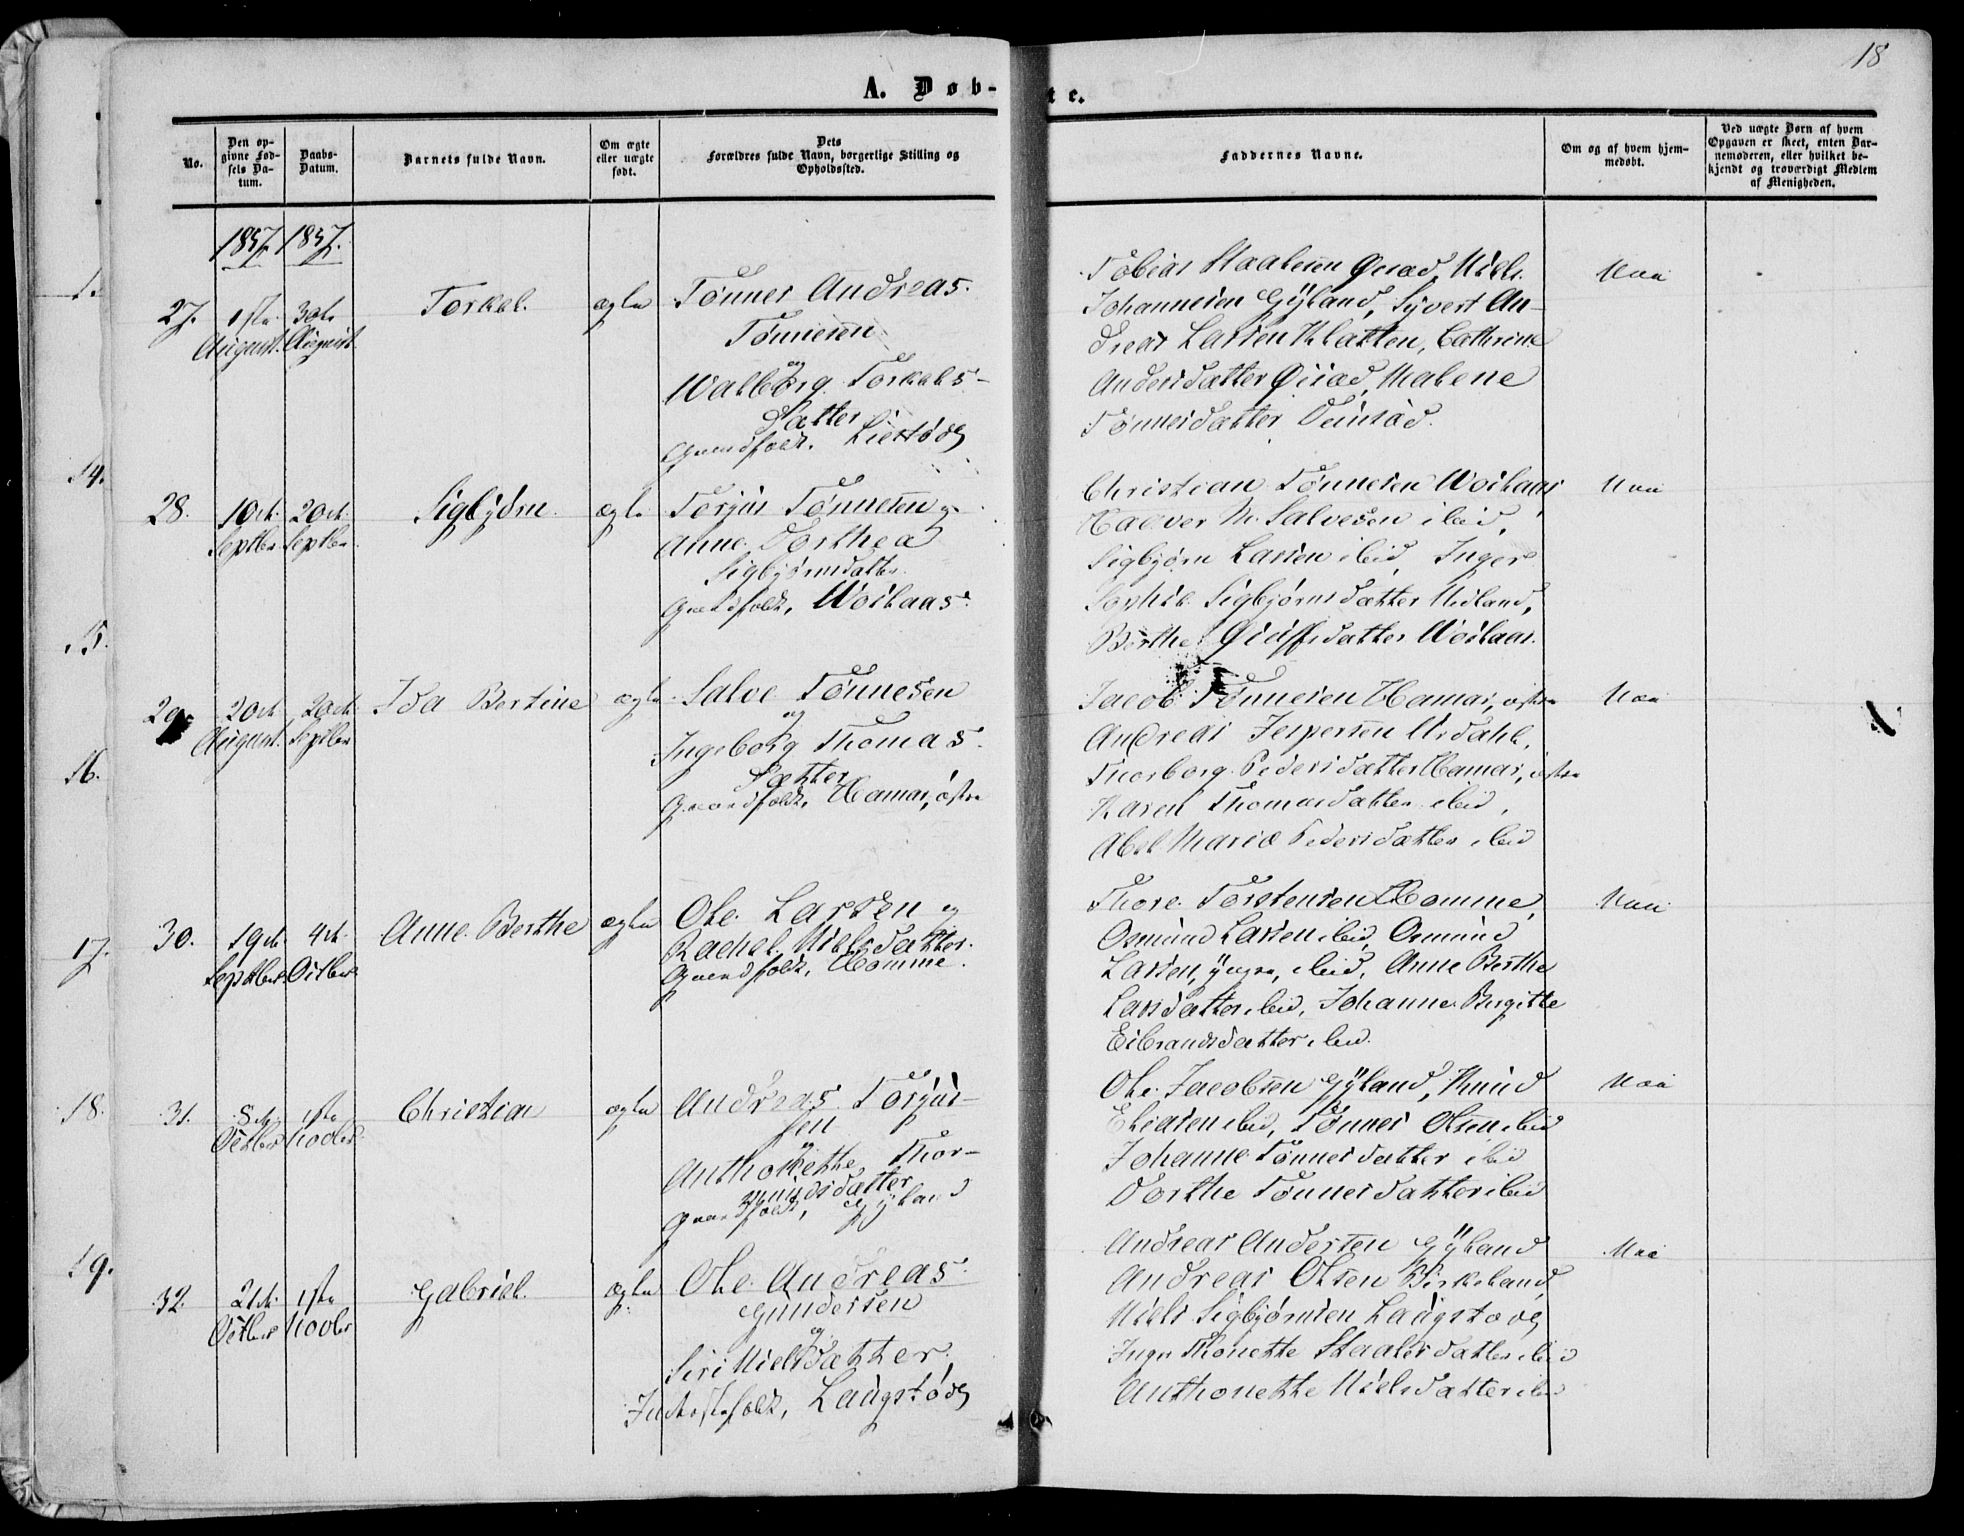 18
A. Døb-te.
No.
Den op-
givne Fød-
sels Da-
tum.
Daabs-
Datum.
Barnets fulde Navn.
Om ægte
eller uægte
født.
Dets
Forældres fulde Navn, borgerlige Stilling og
Opholdssted.
Faddernes Navne.
Om og af hvem hjem-
medøbt.
Ved uægte Børn af hvem
Opgaven er skeet, enten Bar-
nemoderen, eller hvilket be-
kjendt og troværdigt Medlem
af Menigheden.
1857. 1857.
27. 1ste August. 30te August. Torkel. ægte
Tønnes Andreas
Tønnesen
og
Walborg Torkels-
datter
Gaardfolk, Liestøl
Tobias Staalesen Qviad, Niels
Johannesen Gÿland, Syvert An-
dreas Larsen Klatten, Cathrine
Andersdatter Qviad, Malene
Tønnesdatter
Naa
28. 10de Septbr 20de Septbr Sigbjørn. ægte
Torjus Tønnesen og
Anne Dorthea
Sigbjørnsdatter
Gaardfolk, Woilaas.
Christian Tønnesen Woilaas
Halver M. Salvesen ibid,
Sigbjørn Larsen ibid, Inger
Sophie Sigbjørnsdatter Midland,
Berthe datter Woilaas.
Naa
29. 20de August. 20de Septbr Ida Bertine ægte
Salve Tønnesen
og
Ingeborg Thomas-
datter
Gaardfolk, Hamar, østre
Jacob Tønnesen Hamar, østre
Andreas Jespersen Urdahl,
Thorborg Pedersdatter Hamar, østre
Karen Thomasdatter ibid,
Abel Marie Pedersdatter ibid
Naa
30. 19de Septbr. 4de Octbr Anne Berthe ægte
Ole Larsen og
Rachel Nielsdatter.
Gaardfolk, Homme.
Thore Torstensen Homme,
Osmund Larsen ibid, Osmund
Larsen, yngre, ibid, Anne Berthe
Larsdatter ibid, Johanne Birgitte
Eibrandsdatter ibid.
Naa
31. 8de Octbr 1ste Novbr. Christian ægte
Andreas Torjus-
sen
og
Anthonette Thor-
mundsdatter
Gaardfolk, Gÿland
Ole Jacobsen Gÿland, Knud
Eliasen ibid, Tønnes Olsen ibid
Johanne Tønnesdatter ibid
Dorthe Tønnesdatter ibid
Naa
32. 21de Octbr 1ste Novbr Gabriel. ægte
Ole Andreas
Gundersen
og
Siri Nielsdatter,
Inderstfolk, Laugstøl
Andreas Andersen Gÿland
Andreas Olsen Birkeland,
Niels Sigbjørnsen Laugstøl
Inger Thonette Staalesdatter ibid
Anthonette Nielsdatter ibid
Naa
14.
15.
16.
17.
18.
19.